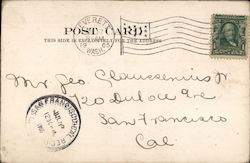 EVERETT
WASH.
POST CARD
THIS SIDE IS EXCLUSIVELY FOR THE ADDRESS
Mr. Geo Claussenius Jr
720 Dolores
San Francisco
Cal
SAN FRANCISCO, CAL.
REC'D